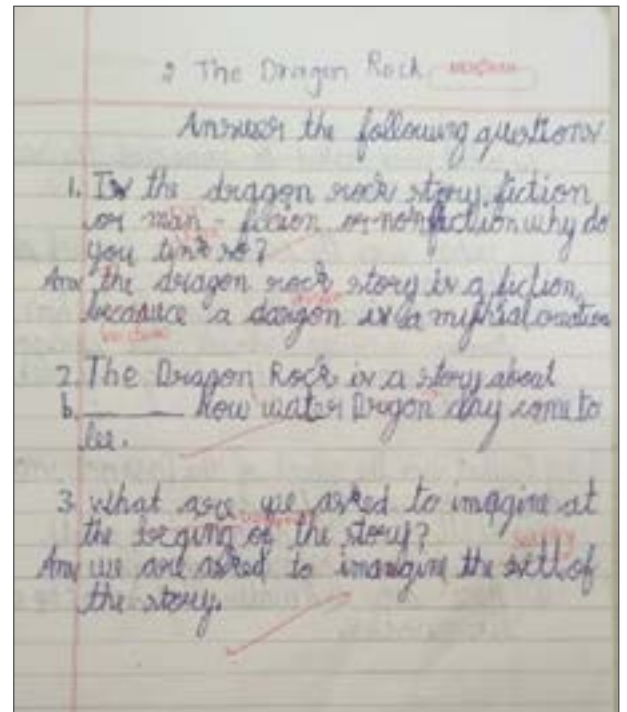 2 The Dragon Rock
Answer the following questions
1. Is the dragon rock story, fiction
or non - fiction or nonfiction why do
you tink so?
Ans the dragon rock story is a fiction,
a dargon is a
2. The Dragon Rock is a story about
b. ______ how water Drgon day come to
be.
3 what are we asked to imagine at
the of the story?
Ans we are asked to imangine the of
the story.